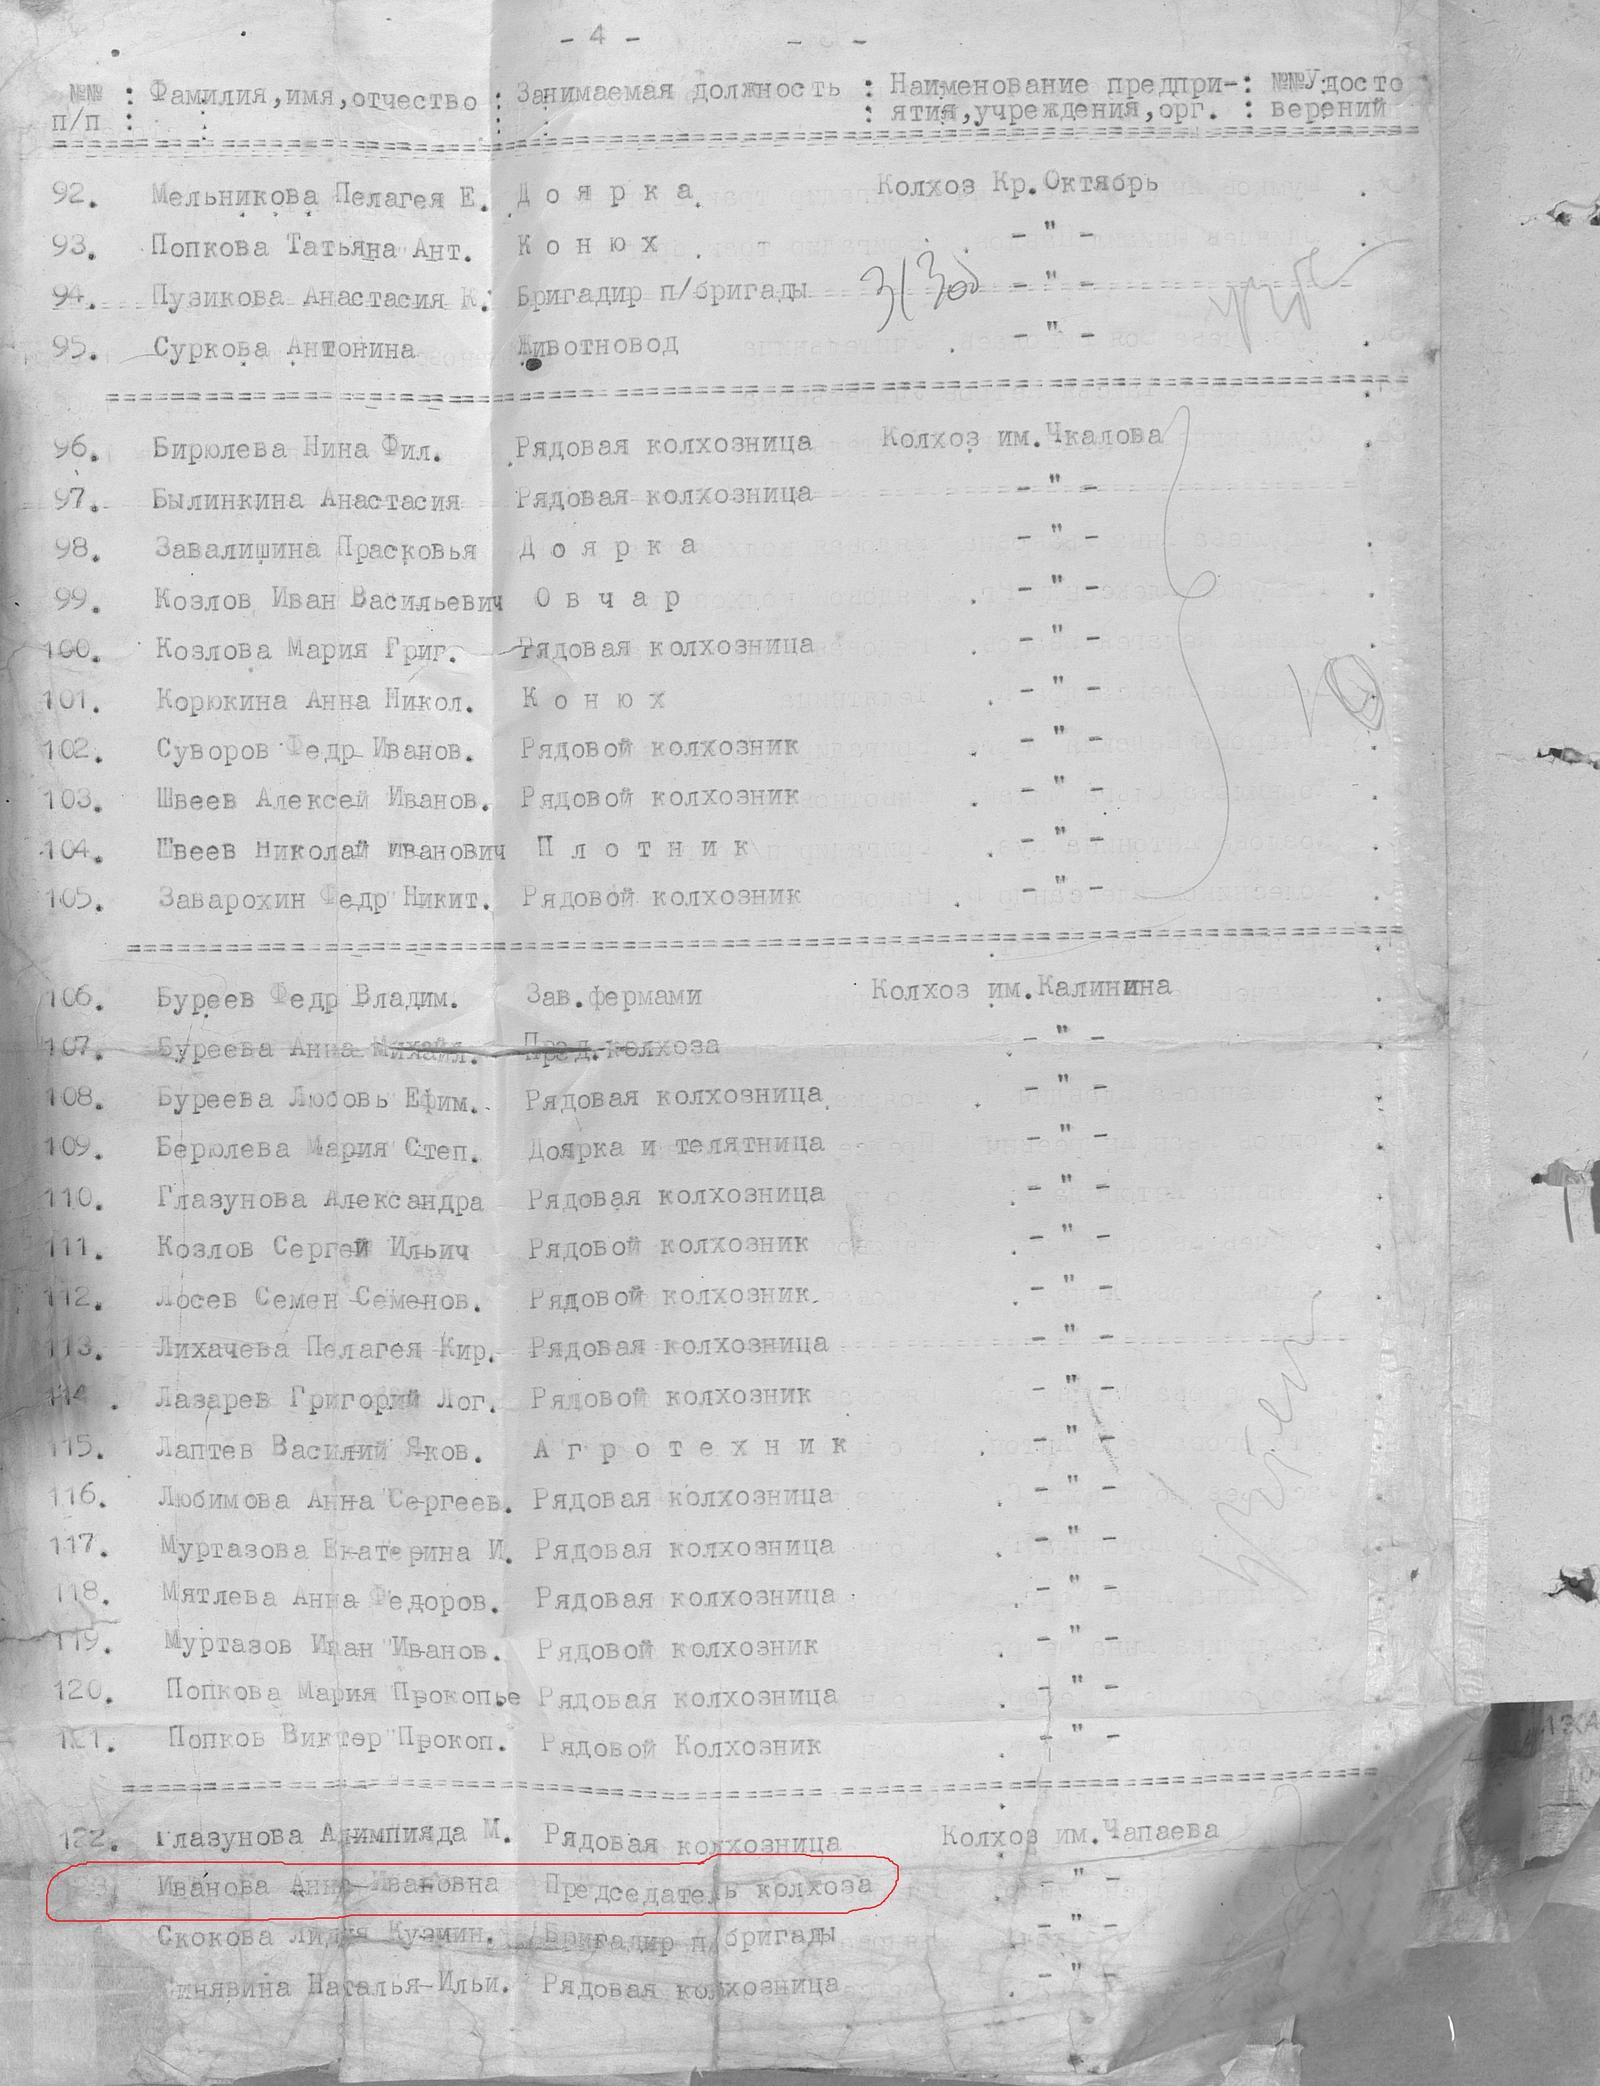 - 4 -
№№ : Фамилия,имя,отчество : Занимаемая должность : Наименование предпри-: №№Удосто
п/п : : : : : ятия,учреждения,орг. : верений
92. Мельникова Пелагея Е. Доярка Колхоз Кр.Октябрь
93. Попкова Татьяна Ант. Конюх - " -
94. Пузикова Анастасия К. Бригадир п/бригады - " -
95. Суркова Антонина Животновод - " -
96. Бирюлева Нина Фил. Рядовая колхозница Колхоз им.Чкалова
97. Былинкина Анастасия Рядовая колхозница - " -
98. Завалишина Прасковья Доярка - " -
99. Козлов Иван Васильевич Овчар - " -
100. Козлова Мария Григ. Рядовая колхозница - " -
101. Корюкина Анна Никол. Конюх - " -
102. Суворов Федр Иванов. Рядовой колхозник - " -
103. Швеев Алексей Иванов. Рядовой колхозник - " -
104. Швеев Николай Иванович Плотник - " -
105. Заварохин Федр Никит. Рядовой колхозник - " -
106. Буреев Федр Владим. Зав.фермами Колхоз им.Калинина
107. Буреева Анна Михайл. Пред.колхоза - " -
108. Буреева Любовь Ефим. Рядовая колхозница - " -
109. Берюлева Мария Степ. Доярка и телятница - " -
110. Глазунова Александра Рядовая колхозница - " -
111. Козлов Сергей Ильич Рядовой колхозник - " -
112. Лосев Семен Семенов. Рядовой колхозник. - " -
113. Лихачева Пелагея Кир. Рядовая колхозница - " -
114. Лазарев Григорий Лог. Рядовой колхозник - " -
115. Лаптев Василий Яков. Агротехник - " -
116. Любимова Анна Сергеев. Рядовая колхозница - " -
117. Муртазова Екатерина И. Рядовая колхозница - " -
118. Мятлева Анна Федоров. Рядовая колхозница - " -
119. Муртазов Иван Иванов. Рядовой колхозник - " -
120. Попкова Мария Прокопье Рядовая колхозница - " -
121. Попков Виктор Прокоп. Рядовой Колхозник - " -
122. Глазунова Алимпияда М. Рядовая колхозница Колхоз им.Чапаева
Иванова Анна Ивановна Председатель колхоза - " -
Скокова Лидия Кузмин. Бригадир п/бригады - " -
инявина Наталья Ильи. Рядовая колхозница - " -